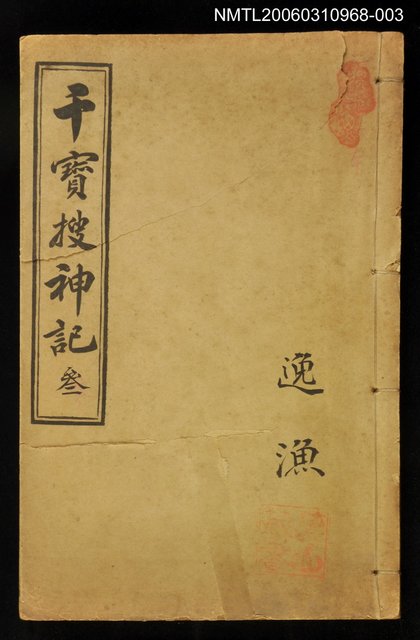 NMTL20060310968-003
干寶搜神記 叁
逸漁